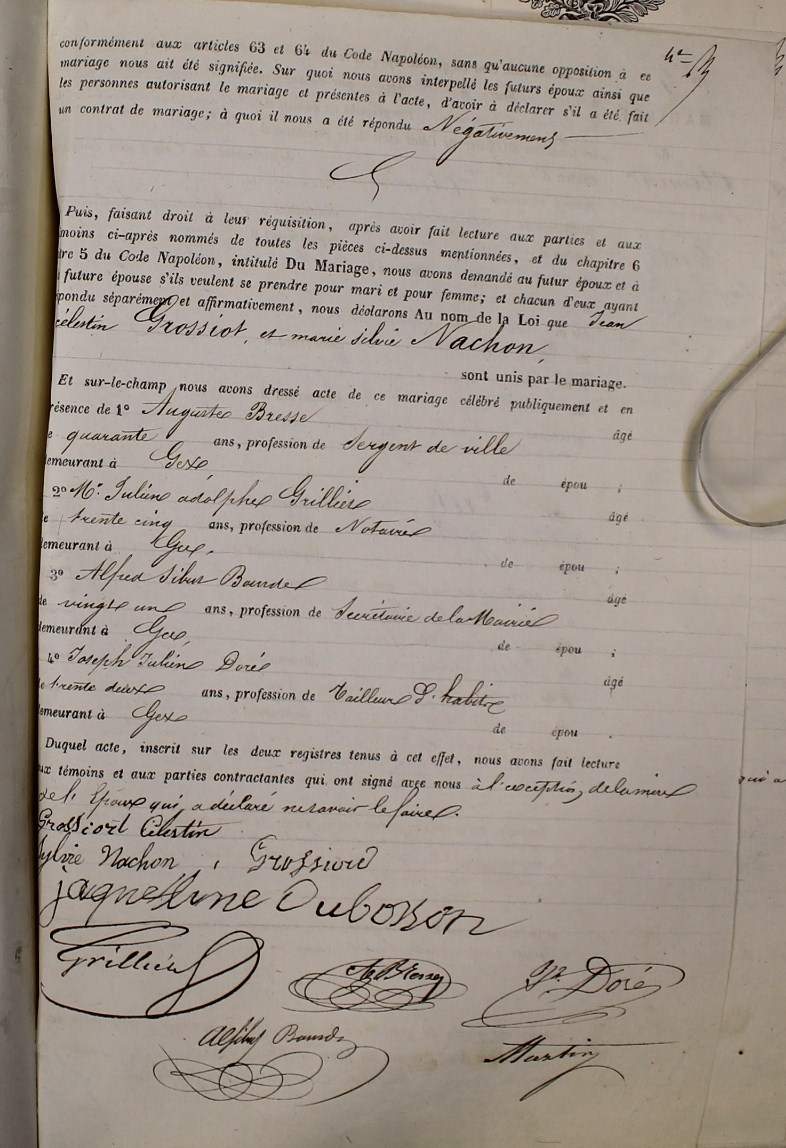 conformément aux articles 63 et 64 du Code Napoléon, sans qu'aucune opposition à ce
mariage nous ait été signifiée. Sur quoi nous avons interpellé les futurs époux ainsi que
les personnes autorisant le mariage et présentes à l'acte, d'avoir à déclarer s'il a été fait
un contrat de mariage; à quoi il nous a été répondu Négativement
Puis, faisant droit à leur réquisition, après avoir fait lecture aux parties et aux
moins ci-après nommés de toutes les pièces ci-dessus mentionnées, et du chapitre 6
tre 5 du Code Napoléon, intitulé Du Mariage, nous avons demandé au futur époux et à
future épouse s'ils veulent se prendre pour mari et pour femme; et chacun d'eux ayant
pondu séparément et affirmativement, nous déclarons Au nom de la Loi que Jean
célestin Grossiot, et marie silvie Nachon,
sont unis par le mariage.
Et sur-le-champ nous avons dressé acte de ce mariage célébré publiquement et en
résence de 1° Auguste Bresse
âgé
e quarante ans, profession de Sergent de ville
emeurant à Gex,
de épou ;
2° Mr. Julien adolphe Grillier
âgé
e trente cinq ans, profession de Notaire
demeurant à Gex.
de épou ;
3° Alfred
âgé
de vingt un ans, profession de Secrétaire de la Mairie
demeurant à Gex,
de épou ;
4° Joseph Julien Doré
âgé
e trente deux ans, profession de Tailleur d'habits
demeurant à Gex
de épou .
Duquel acte, inscrit sur les deux registres tenus à cet effet, nous avons fait lecture
ux témoins et aux parties contractantes qui ont signé avec nous à l'exception de la mère
de l'Epoux qui a déclaré ne savoir le faire.
Grossiord Célestin
Sylvie Nachon , Grossiord
jaqueline Dubosson
Grillier
Bresse
Doré
Martin